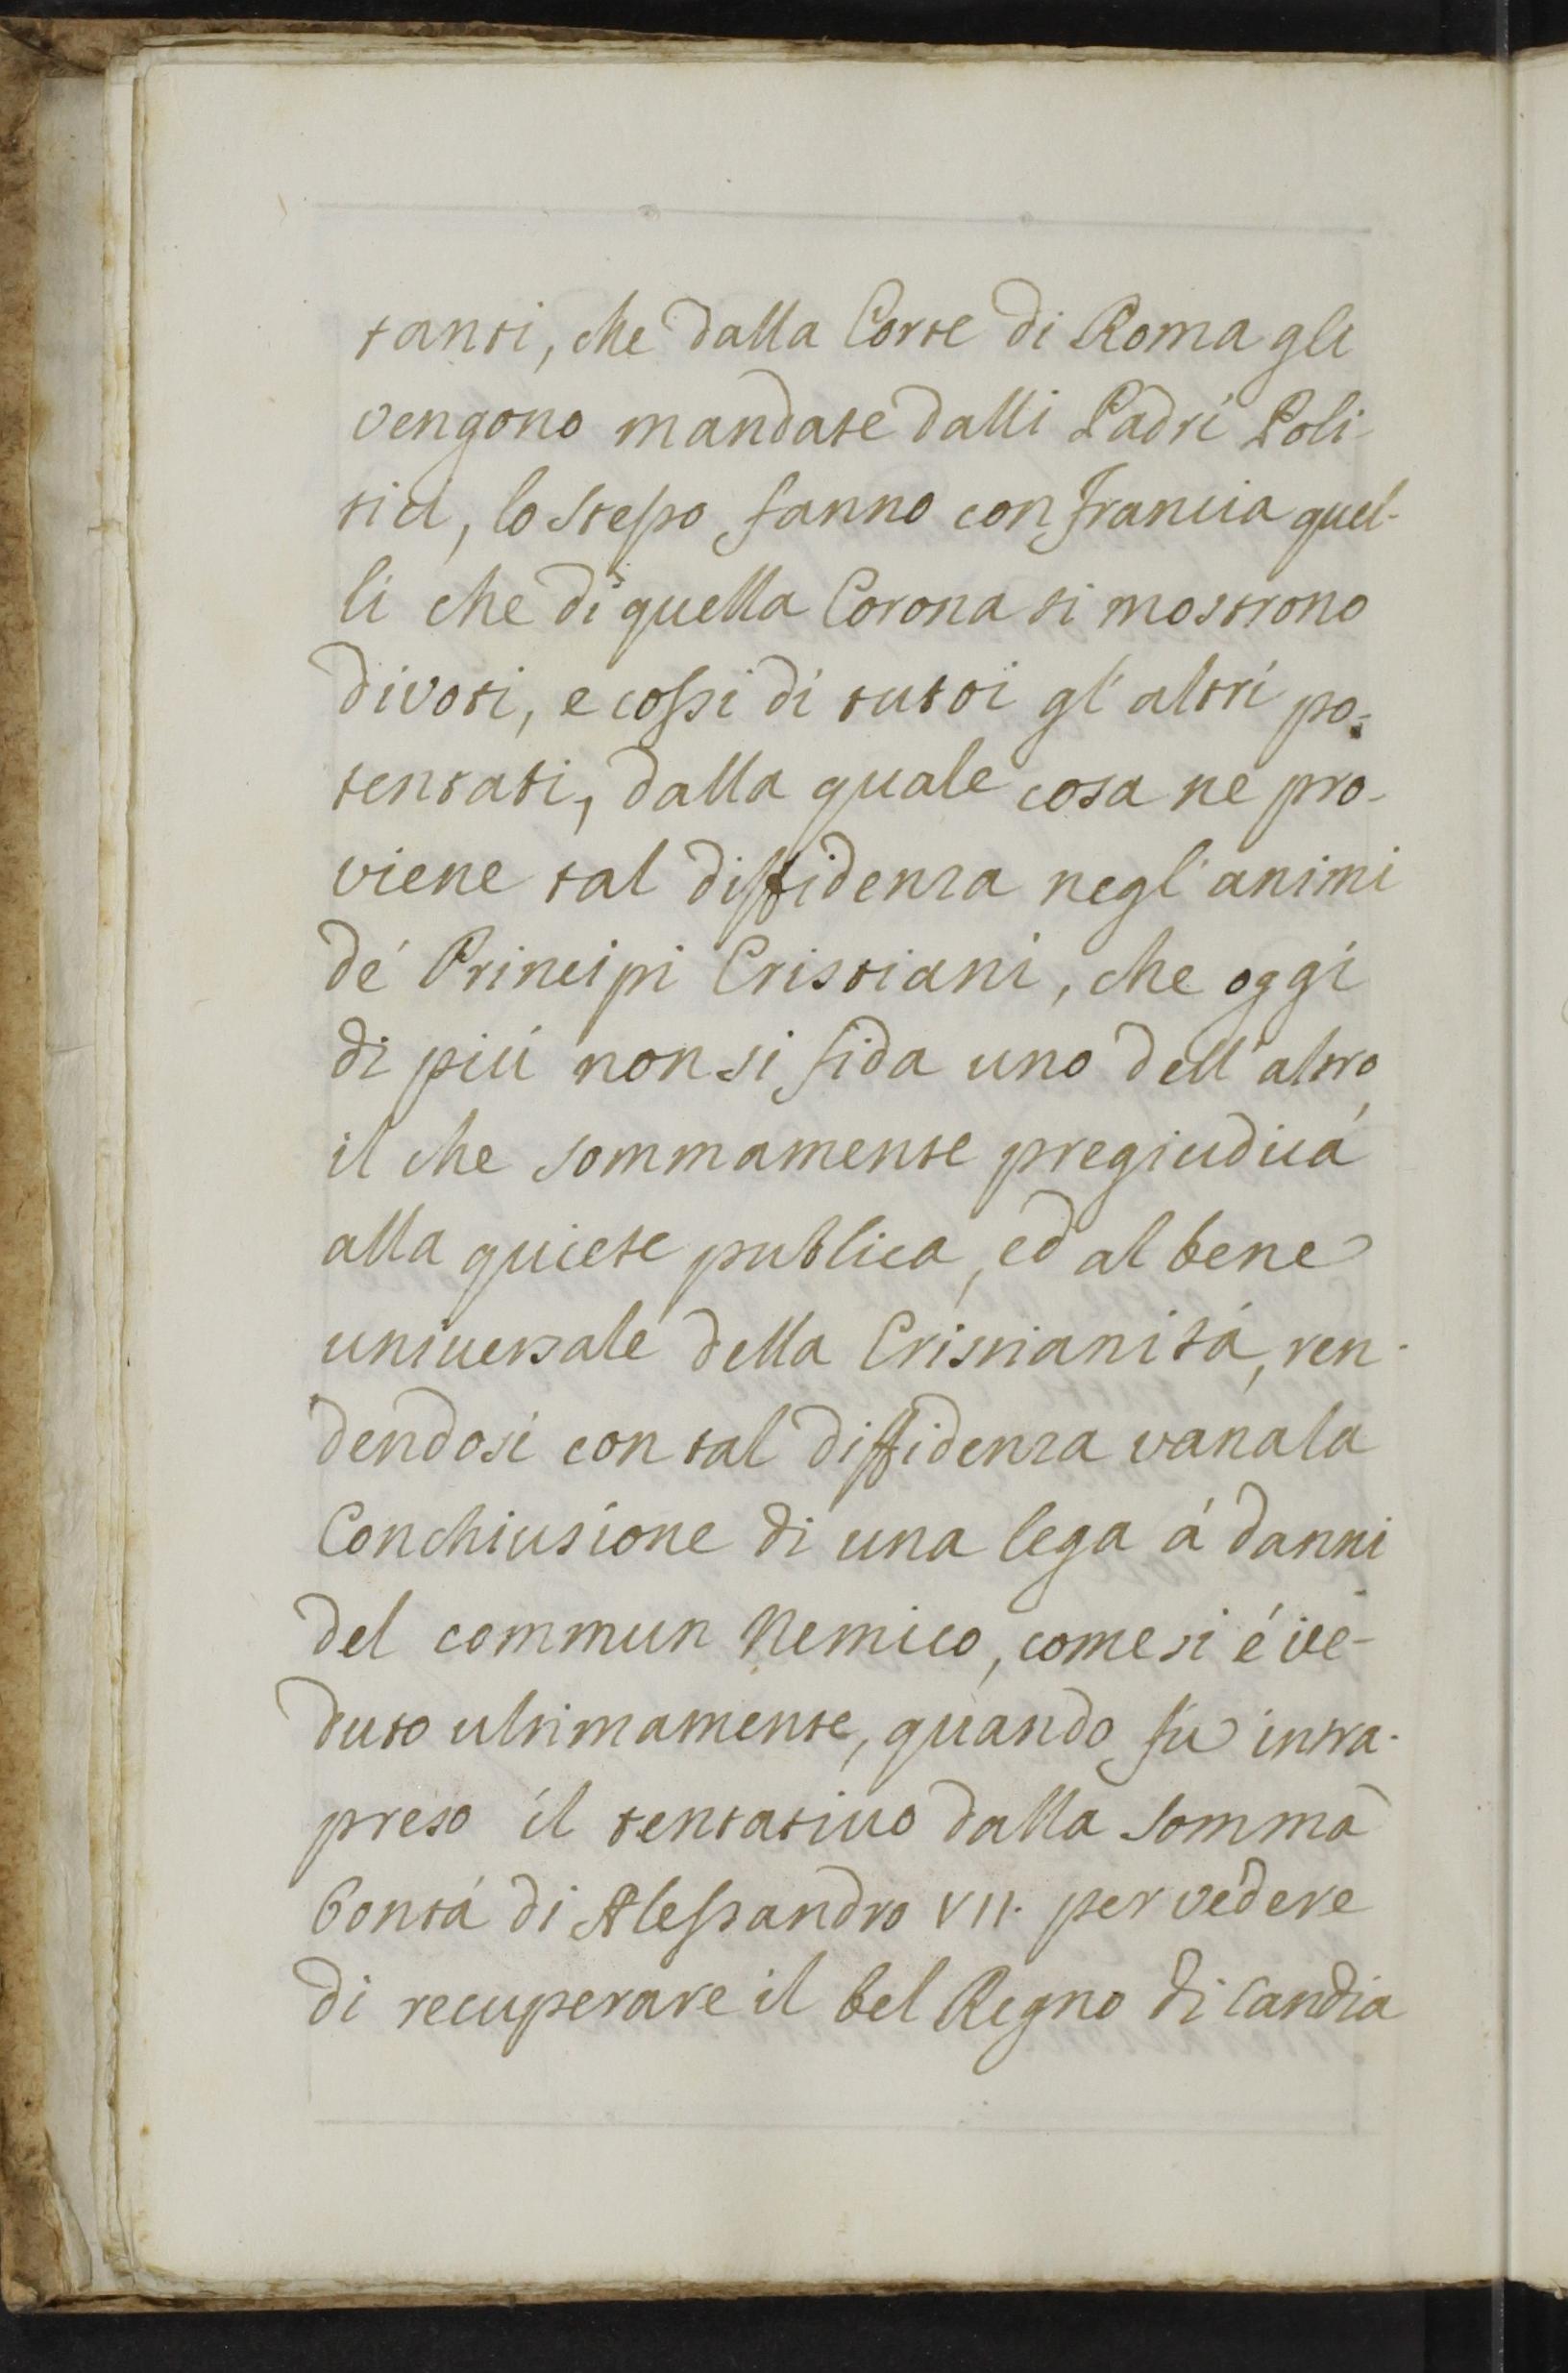 tanti, che dalla Corte di Roma gli
vengono mandate dalli Padri Poli-
tici, lo stesso fanno con francia quel-
li che di quella Corona si mostrono
divoti, e cossi di tuttoi gl'altri po-
tentati, dalla quale cosa ne pro-
viene tal diffidenza negl'animi
dé Principi Cristiani, che oggi
di piú non si fida uno dell'altro,
il che sommamente pregiudica
alla quiete publica, ed al bene
uniuersale della Cristianitá, ren-
dendosi con tal diffidenza vana la
Conchiusione di una lega á danni
del commun Nemico, come si é ve-
duto ultimamente, quando fú intra-
preso il tentatiuo dalla somma
bontá di Alessandro VII. per vedere
di recuperare il bel Regno di Candia